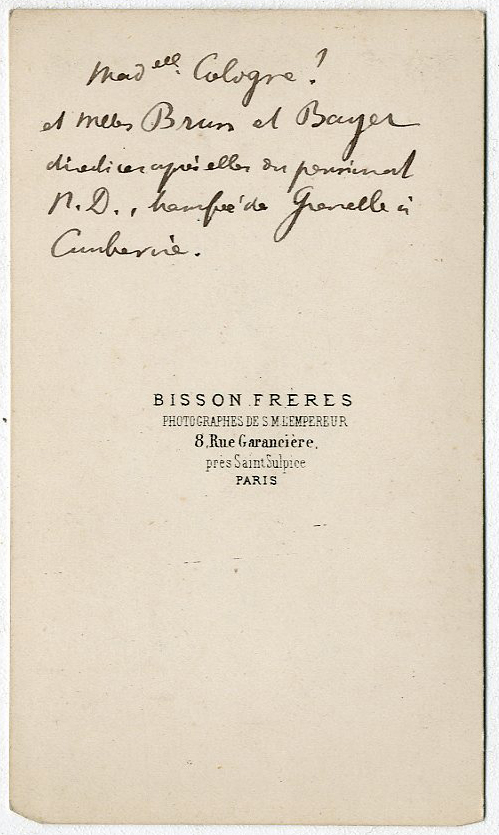 Mad^elle. Cologne !
et Melles Brun et Bayer
directrices après elles du pensionnat
N. D., transféré de Grenelle à
BISSON FRÈRES
PHOTOGRAPHES DE S. M. L'EMPEREUR
8, Rue Garancière,
près Saint Sulpice
PARIS